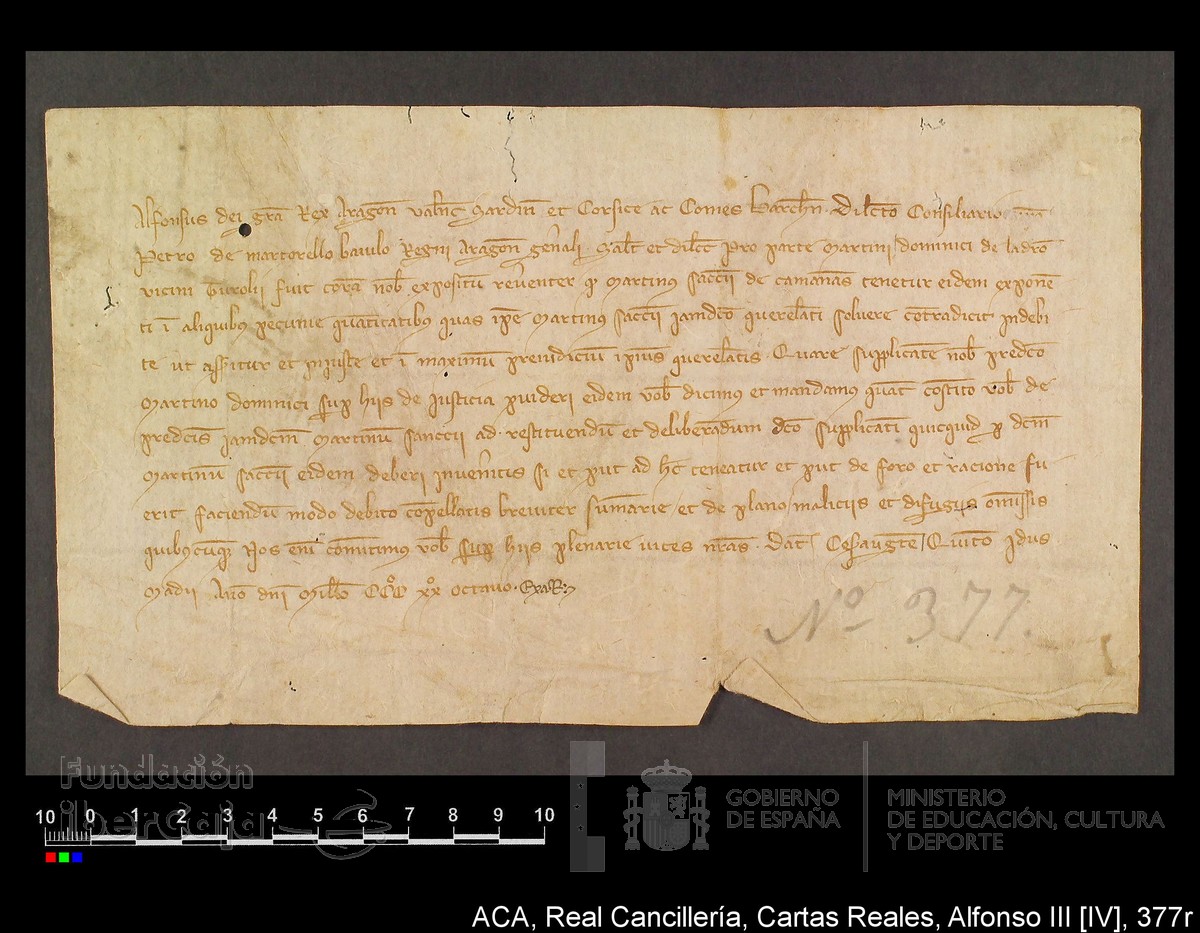 Alfonsus dei gra Rex Aragon valenc Sardin et Corsice ac Comes Barchn. Dilcto Consiliario
Petro de martorello baiulo Regni Aragon gen̄ali. Salt et dilcc Pro parte Martini dominici de ladro
vicini Turolii fuit cora nob expositu reverenter qd Martinus sanccii de camanas tenetur eidem exponē
ti ī aliquibus peccunie quātitatibus quas ip̄e Martinus sanccii iamdcō querelāti solvere cōtradicit indebi
te ut asseritur et iniuste et ī maximū preiudiciū ipsius querelātis. Quare supplicāte nob predcō
Martino dominici sup hiis de iusticia p̱videri eidem vob dicimus et mandamus quat cōstito vob de
predcīs iamdcm̄ Martinū sanccii ad restituendū et deliberādum dcō supplicāti quicquid p̱ dcm̄
Martinū sanccii eidem deberi inveneritis si et put ad hc̄ teneatur et put de foro et racione fu
erit faciendū modo debito cōpellatis breviter summarie et de plano maliciis et difugiis om̄issis
quibuscūque Nos eni comitimus vob sup hiis plenarie vices nr̄as. Dat Cesaraugte Quīto Idus
Madii Año dni Mill̄o CCCº xxº octavo. Exa R.
Nº 377.
Fundación
ibercaja
10 0 1 2 3 4 5 6 7 8 9 10
GOBIERNO
DE ESPAÑA
MINISTERIO
DE EDUCACIÓN, CULTURA
Y DEPORTE
ACA, Real Cancillería, Cartas Reales, Alfonso III [IV], 377r